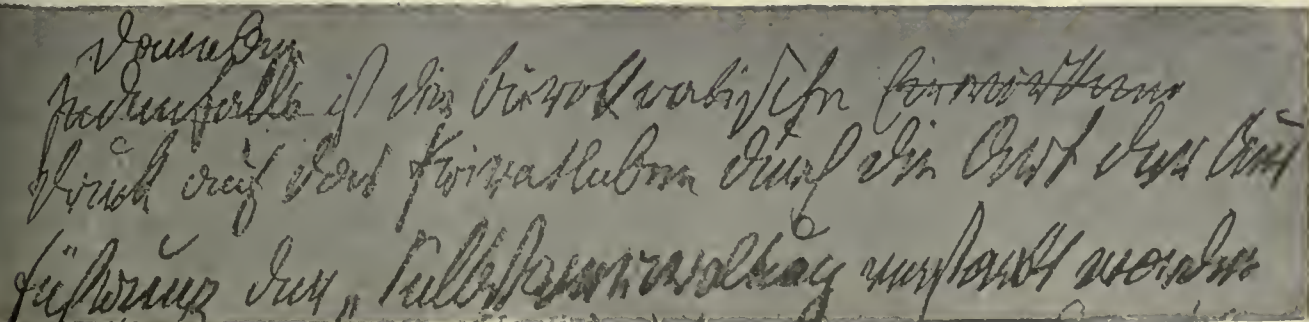 Daneben
Jedenfalls ist die bürokratische Einwirkung
Druck auf das Privatleben durch die Art der Aus
führung der „Selbstverwaltung verstärkt worden